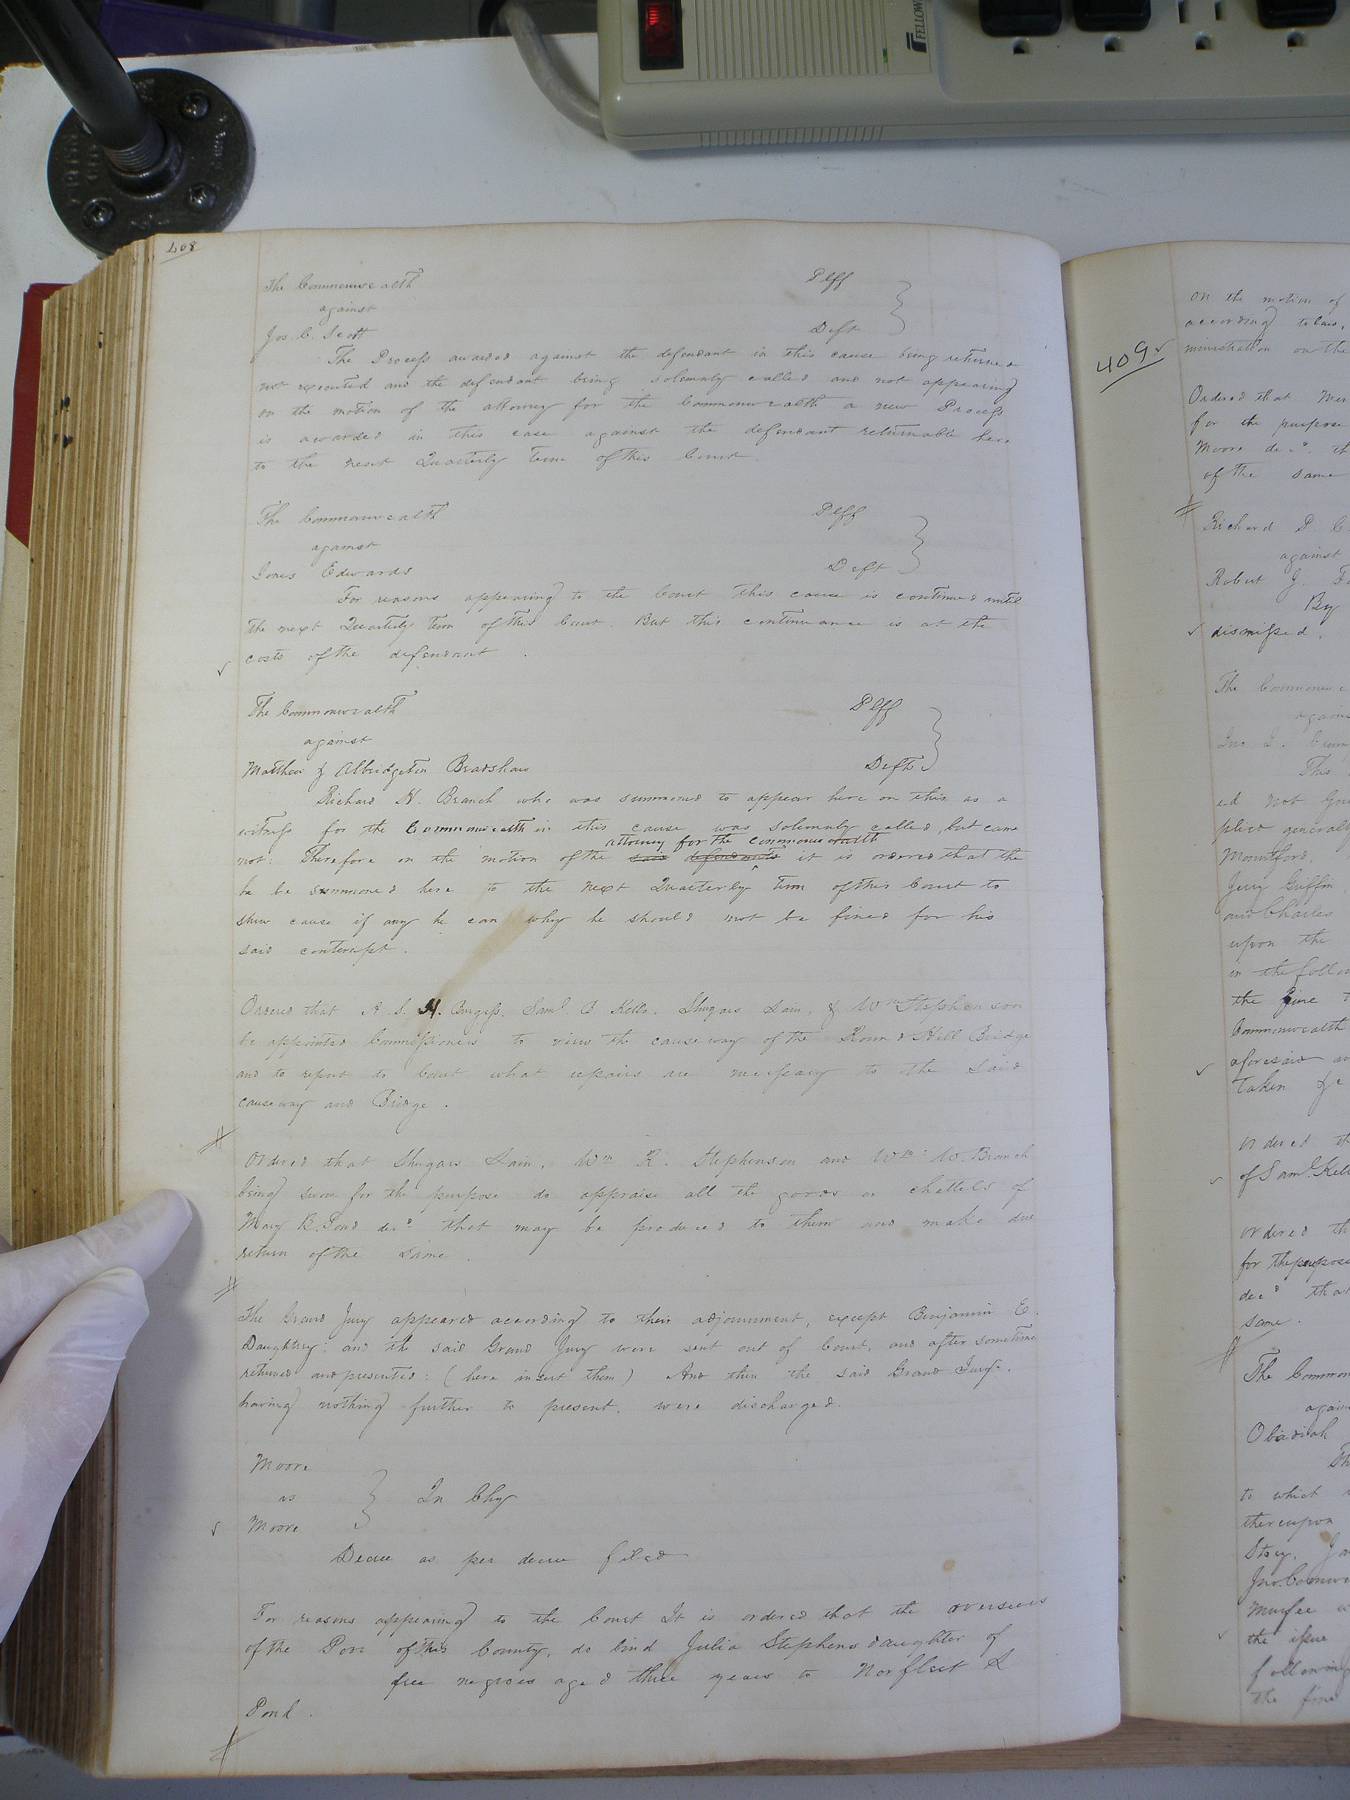 408
The Commonwealth Plff
against
Jos. C. Scott Deft
The Process awarded against the defendant in this cause being returned
not executed and the defendant being solemnly called and not appearing
on the motion of the attorney for the Commonwealth a new Process
is awarded in this case against the defendant returnable here
to the next Quarterly Term of this Court.
The Commonwealth Plff
against
Jones Edwards Deft
For reasons appearing to the Court this cause is continued until
the next Quarterly Term of this Court. But this continuance is at the
costs of the defendant.
The Commonwealth Plff
against
Matthew & Albridgeton Bradshaw Defts
Richard H. Branch who was summoned to appear here on this as a
witness for the Commonwealth in this cause was solemnly called, but came
attorney for the Commonwealth
not: Therefore on the motion of the said defendants it is ordered that the
he be summoned here to the next Quarterly Term of this Court to
shew cause if any he can why he should not be fined for his
said contempt.
Ordered that A. S. H. Burgess, Saml. B. Kello, Shugars Lain, & Wm Stephenson
be appointed Commissioners to view the causeway of the Round Hill Bridge
and to report to Court what repairs are necessary to the said
causeway and Bridge.
Ordered that Shugars Lain, Wm R. Stephenson and Wm W. Branch
being sworn for the purpose do appraise all the goods or chattels of
Mary B. Pond decd. that may be produced to them and make due
return of the same.
The Grand Jury appeared according to their adjournment, except Benjamin E.
Daughtrey: and the said Grand Jury were sent out of Court, and after sometime
returned and presented: (here insert them) And then the said Grand Jury,
having nothing further to present, were discharged.
Moore
vs In Chy
Moore
Decree as per decree filed
For reasons appearing to the Court It is ordered that the overseers
of the Poor of this County, do bind Julia Stephens daughter of
free negroes aged three years to Norfleet S
Pond.
409
on the motion of
according to law,
ministration on the
Ordered that
for the purpose
Moore decd. th
of the same
Richard P.
against
Robert J.
By
dismissed.
The Commonwe
again
This
ed not Gui
plied generally
Mountford,
Jerry Griffin
and Charles
upon the
in the follo
the fine
Commonwealth
aforesaid an
taken &c
ordered th
of Saml. Kell
ordered th
for the purpose
decd that
same.
The Common
again
Obadiah
Th
to which
thereupon
Story, Ja
Murfee
the issue
following
the fine
FELLOW